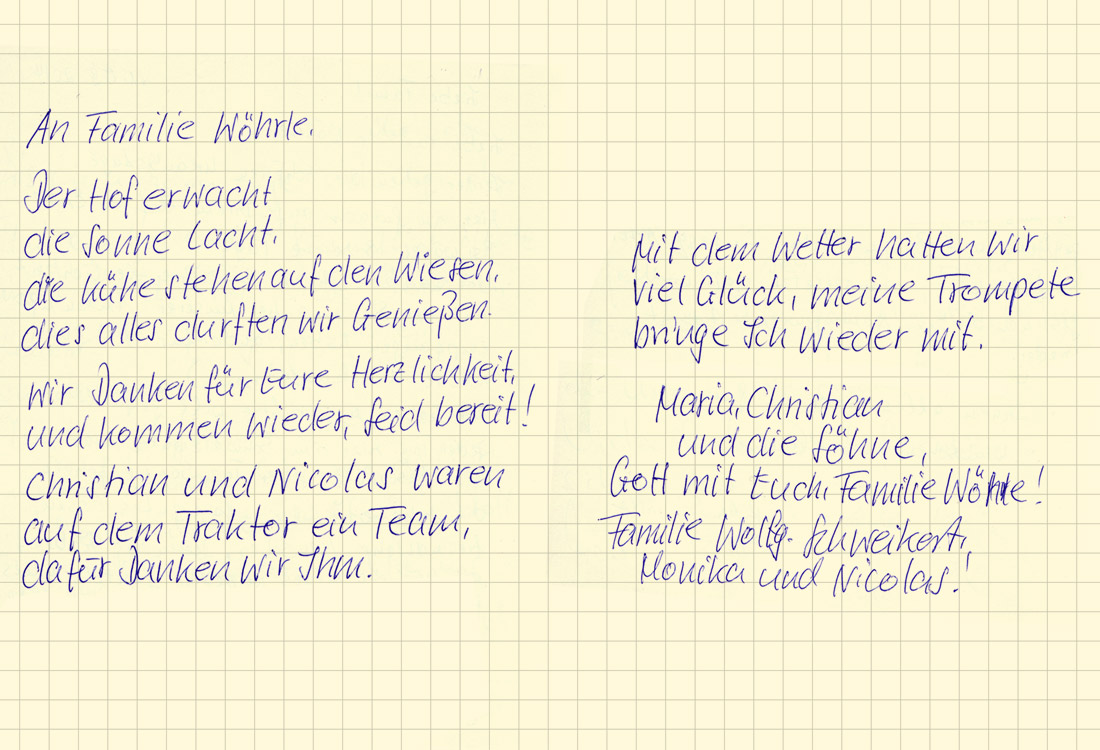 An Familie Wöhrle.
Der Hof erwacht
die Sonne Lacht,
die kühe stehen auf den Wiesen,
dies alles durften wir Genießen.
Wir Danken für Eure Herzlichkeit,
und kommen wieder, seid bereit!
Christian und Nicolas waren
auf dem Traktor ein Team,
dafür Danken wir Ihm.
Mit dem Wetter hatten Wir
viel Glück, meine Trompete
bringe Ich wieder mit.
Maria, Christian
und die Söhne,
Gott mit Euch, Familie Wöhrle!
Familie Wolfg. Schweikert,
Monika und Nicolas!